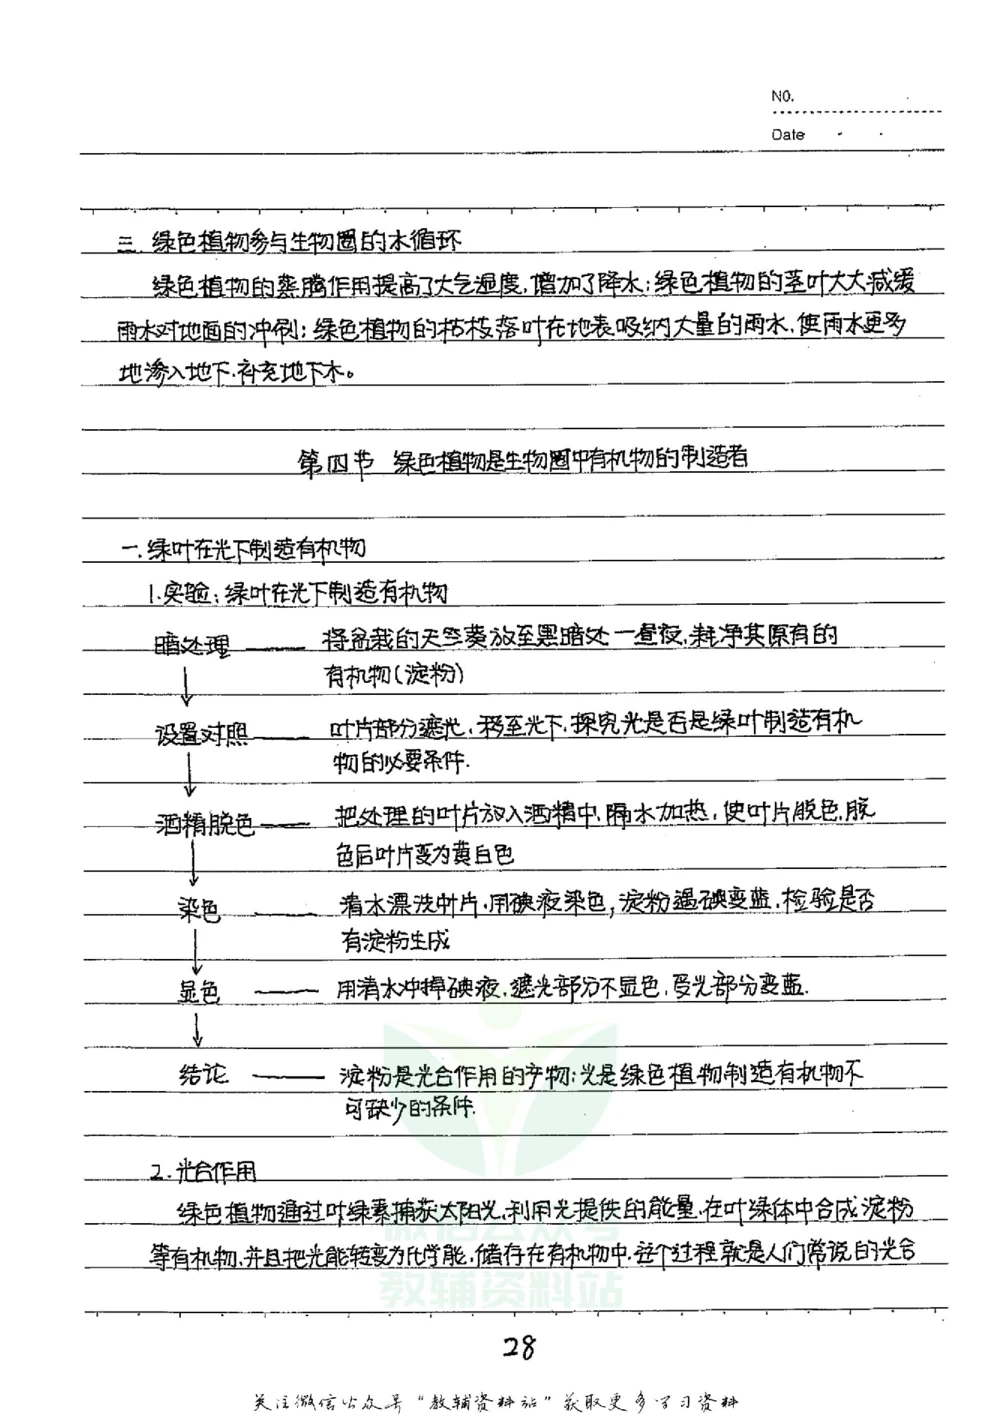 NO.
Date
三. 绿色植物参与生物圈的水循环
绿色植物的蒸腾作用提高了大气湿度,增加了降水;绿色植物的茎叶大大减缓
雨水对地面的冲刷;绿色植物的枯枝落叶在地表吸纳大量的雨水,使雨水更多
地渗入地下,补充地下水。
第四节 绿色植物是生物圈中有机物的制造者
一.绿叶在光下制造有机物
1.实验:绿叶在光下制造有机物
暗处理 —— 将盆栽的天竺葵放至黑暗处一昼夜,耗净其原有的
有机物(淀粉)
↓
设置对照 —— 叶片部分遮光,移至光下,探究光是否是绿叶制造有机
物的必要条件.
↓
酒精脱色 —— 把处理的叶片放入酒精中,隔水加热,使叶片脱色,脱
色后叶片变为黄白色
↓
染色 —— 清水漂洗叶片,用碘液染色,淀粉遇碘变蓝,检验是否
有淀粉生成
↓
显色 —— 用清水冲掉碘液,遮光部分不显色,受光部分变蓝.
↓
结论 —— 淀粉是光合作用的产物;光是绿色植物制造有机物不
可缺少的条件.
2.光合作用
绿色植物通过叶绿素捕获太阳光,利用光提供的能量,在叶绿体中合成淀粉
等有机物,并且把光能转变为化学能,储存在有机物中,这个过程就是人们常说的光合
微信公众号
教辅资料站
28
关注微信公众号“教辅资料站”获取更多学习资料